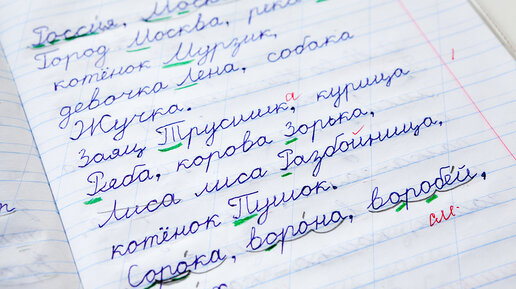 Россия, Москва
Город Москва, река
котёнок Мурзик,
девочка Лена, собака
Жучка.
Заяц Трусишка, курица
Ряба, корова Зорька,
Лиса лиса Разбойница,
котёнок Пушок.
Сорока, ворона, воробей,
см.